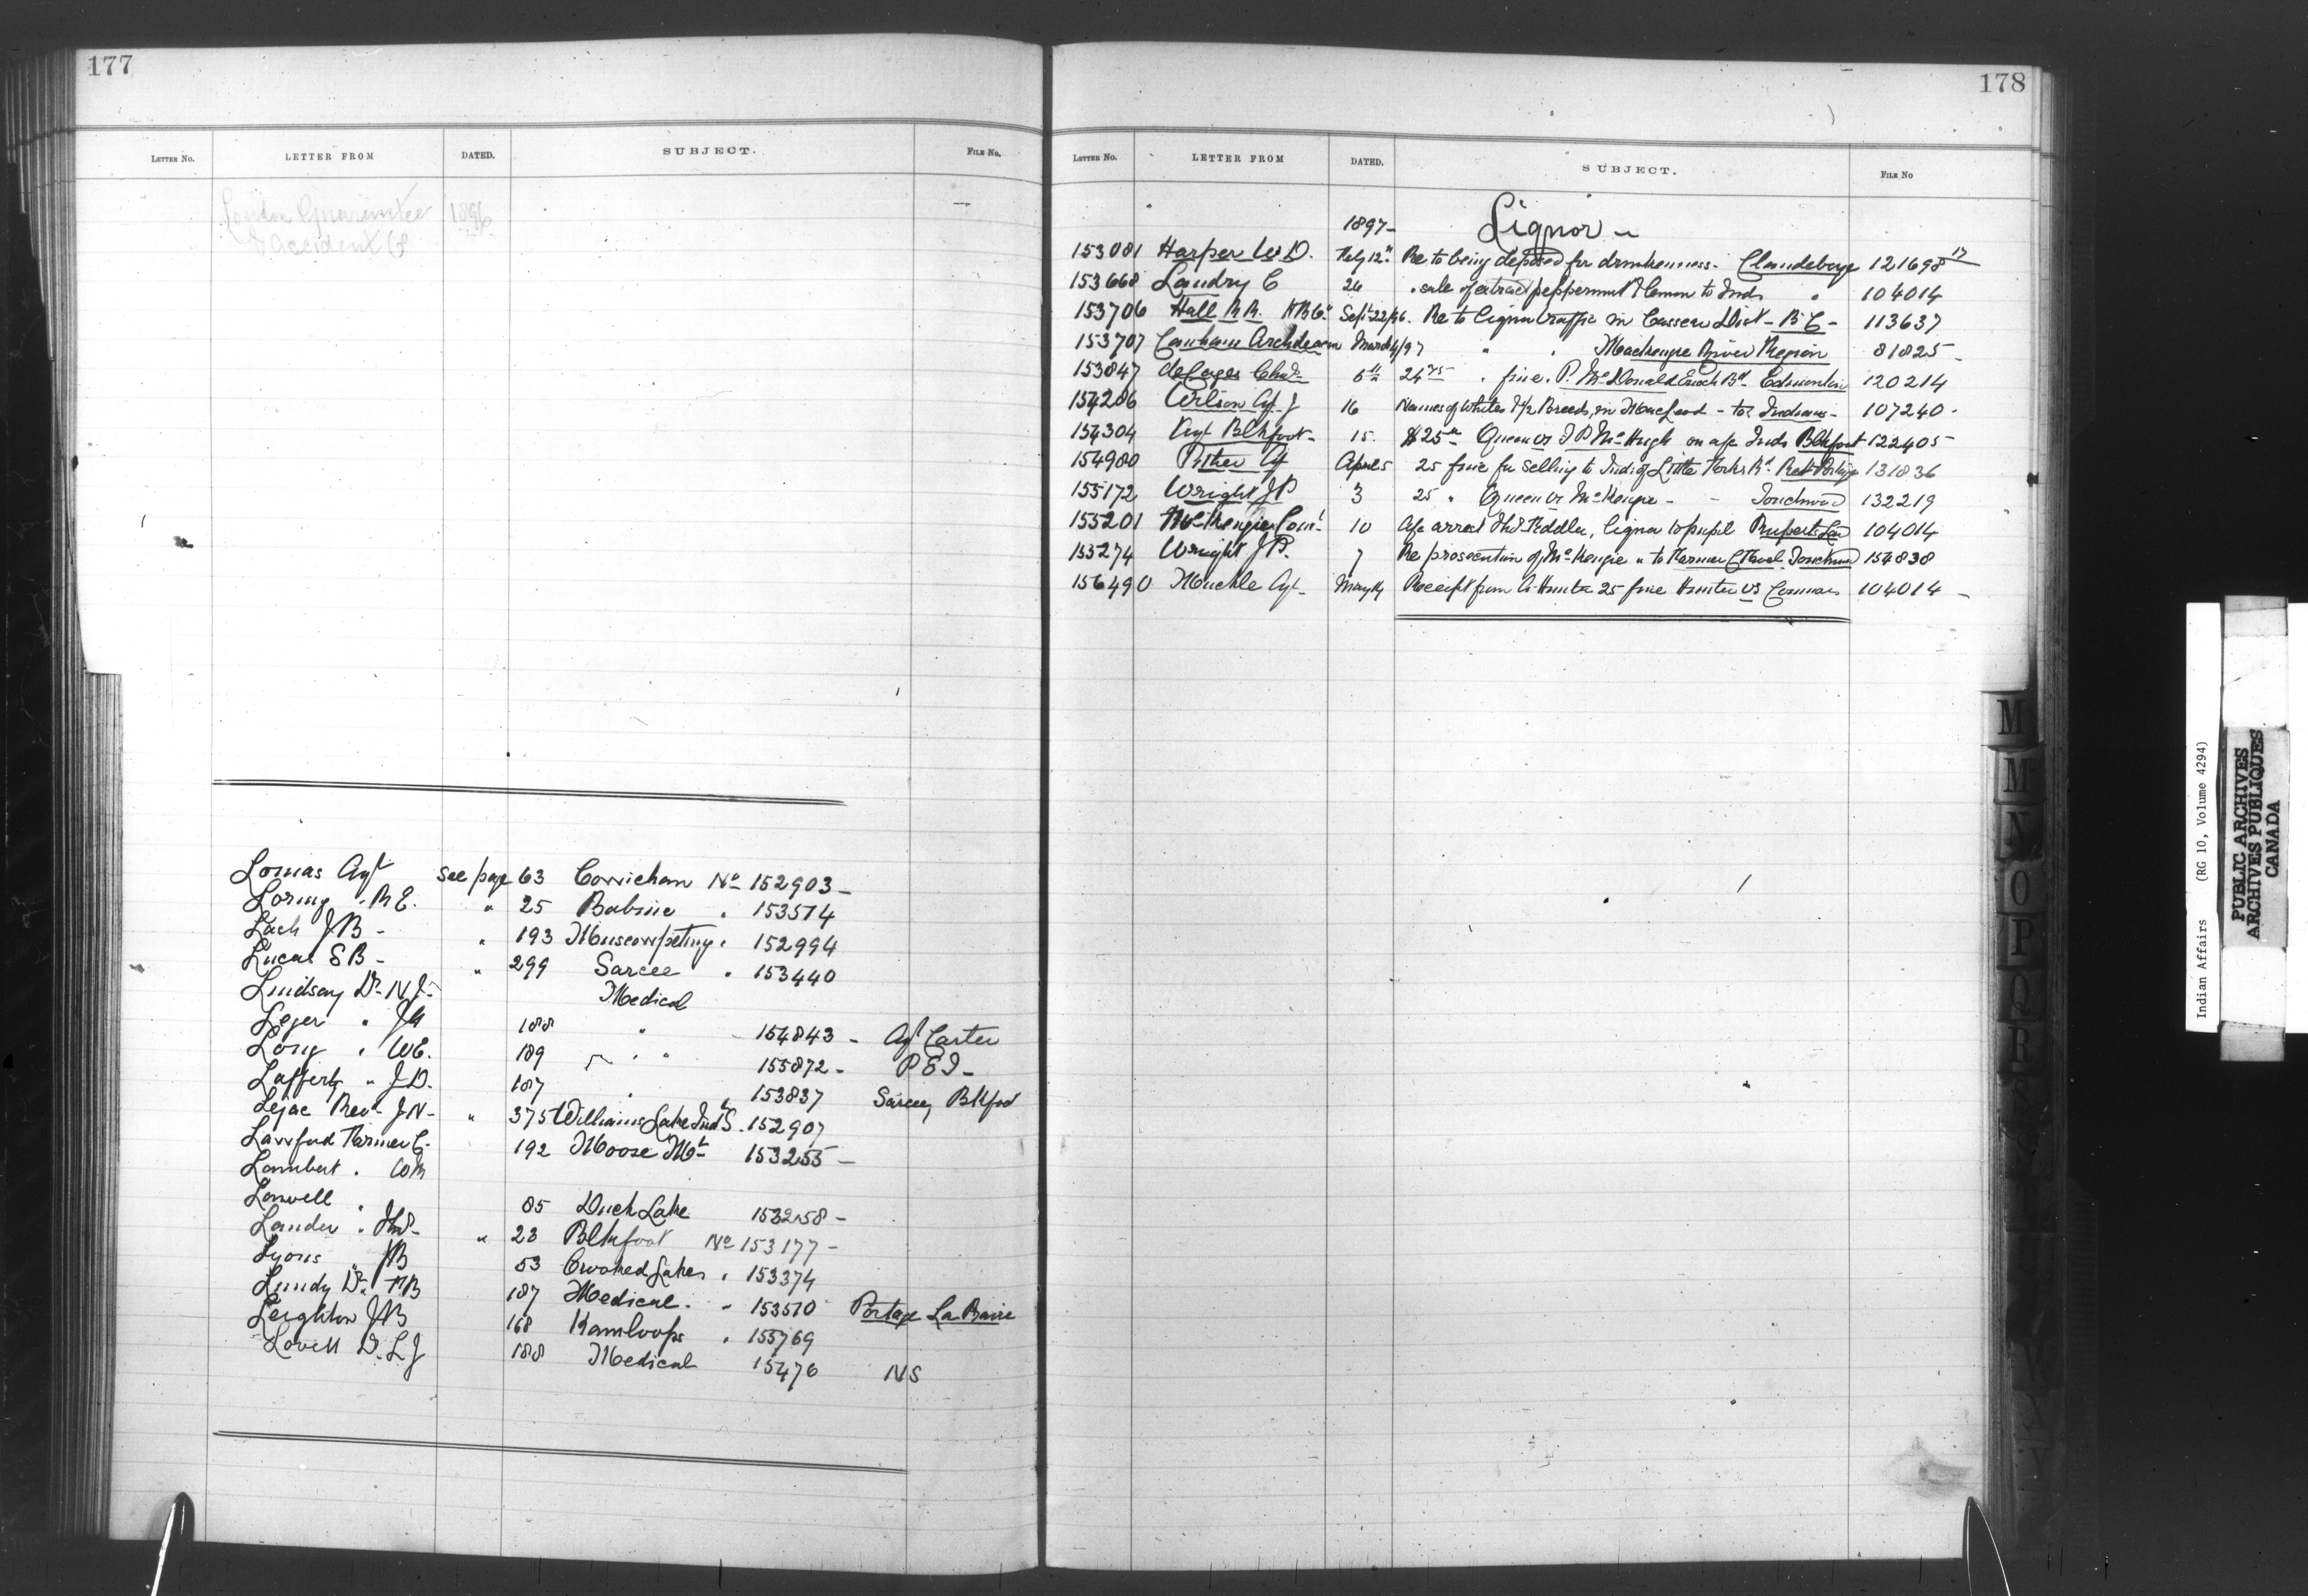 177
LETTER NO. LETTER FROM DATED. SUBJECT. FILE NO.
London Guarantee 1896
& Accident Co
Lomas Agt see page 63 Cowichan No 152903 -
Loring " R E. " 25 Babine " 153574
Lash J B - " 193 Muscowpetung " 152994
Lucas S B - " 299 Sarcee " 153440
Lindsay Dr N J - Medical
Leger " J A 188 " 154843 - Agt Carter
Long " W E. 189 " " 155872 - P E I -
Lafferty " J D. 187 " 153837 Sarcee, Blkfoot
Lejac Revd J N - " 375 Williams Lake Ind S. 152907
Lawford Farmer C - 192 Moose Mt 153255 -
Lambert " W M
Lowell " 85 Duck Lake 153258 -
Lauder " Thos - " 23 Blkfoot No 153177 -
Lyons J B 53 Crooked Lakes " 153374
Lundy Dr F B 187 Medical - " 153510 Portage La Prairie
Leighton J B 168 Kamloops " 155769
Lovell Dr L J 188 Medical 15476 N S
178
LETTER NO. LETTER FROM DATED. SUBJECT. FILE NO
1897 - Liquor -
153081 Harper W D. Feby 12th Re to being deposed for drunkenness - Clandeboye 121698 17
153668 Landry C 26 " sale of extract peppermint & lemon to Inds " 104014
153706 Hall R H. H B Co Sept 22/96. Re to liquor traffic in Cassiar Dist - B C - 113637
153707 Canham Archdeacon March 4/97 " " Mackenzie River Region 81825 -
153847 deCazes Chas 5th 24 75 " fine. P. McDonald Enoch Bd - Edmonton 120214
154206 Wilson Agt J 16 Names of Whites & 1/2 Breeds, in Macleod - to Indians - 107240 -
154304 Agt Blkfoot - 15. $25 00 Queen vs J P McHugh on a/c Inds Blkfoot 122405
154980 Pither Agt April 5 25 fine for selling to Ind of Little Forks Bd. Rat Portage 131836
155172 Wright J P 3 25 " Queen vs McKenzie - - Touchwood 132219
155201 McKenzie Comr - 10 A/c arrest Thos Peddler, liquor to pupil Ruperts Land 104014
155274 Wright J P. 7 Re prosecution of McKenzie " to Farmer Touchwood 154838
156490 Muckle Agt - May 14 Receipt from A. Hunter 25 fine Hunter vs 104014 -
M
M
N
O
P
Q
R
S
W
X
Y
Indian Affairs (RG 10, Volume 4294)
PUBLIC ARCHIVES
ARCHIVES PUBLIQUES
CANADA